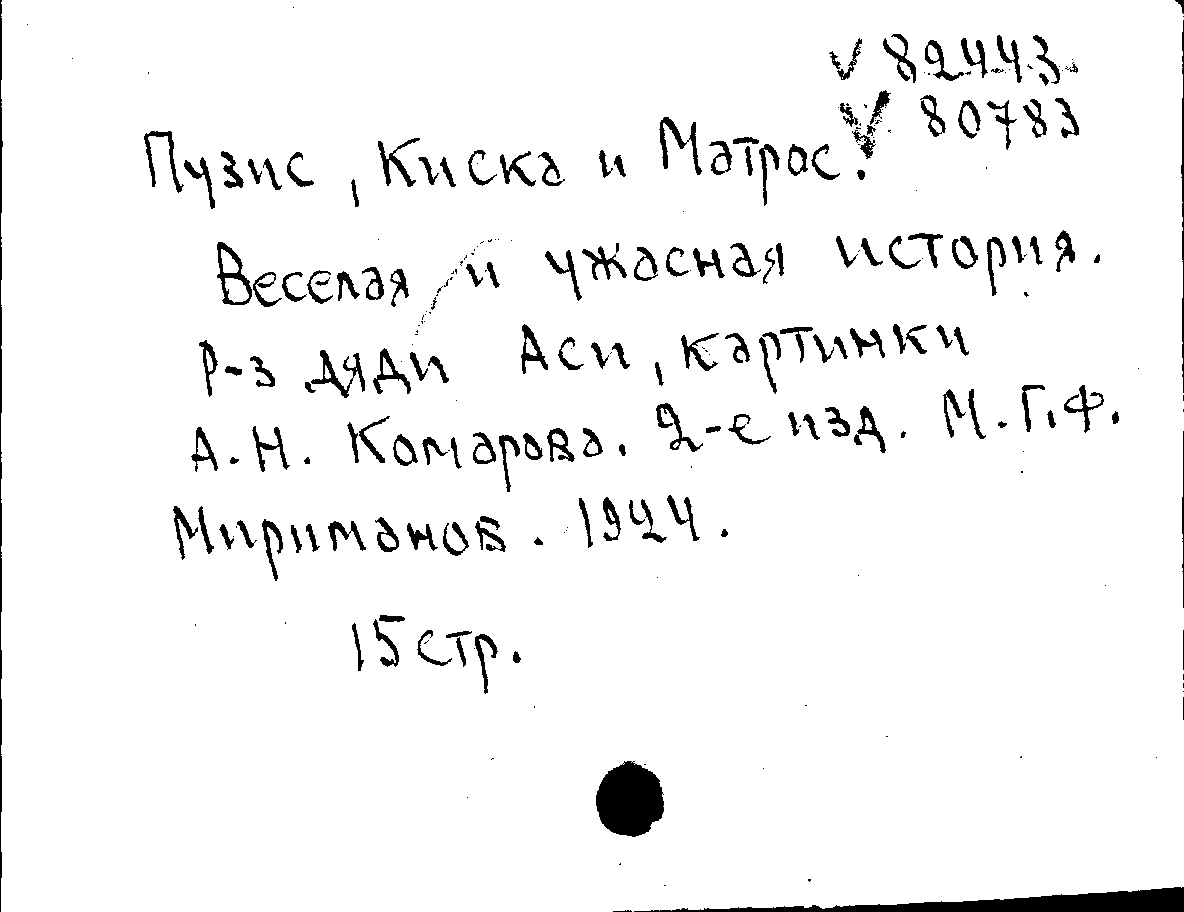 ✓ 82443
✓ 80783
Пузис, Киска и Матрос.
Веселая и ужасная история.
Р-з дяди Аси, картинки
А.Н. Комарова. 2-е изд. М. Г.Ф.
Мириманов. 1924.
15 стр.